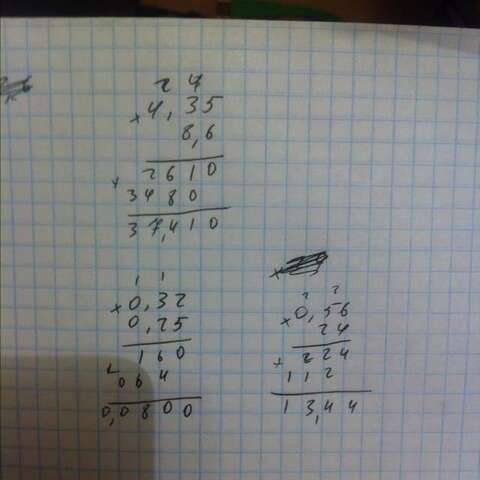 2 4
× 4,35
8,6
+ 2610
3480
37,410
1 1
× 0,32
0,25
+ 160
064
0,0800
×
2 2
× 0,56
24
+ 224
112
13,44